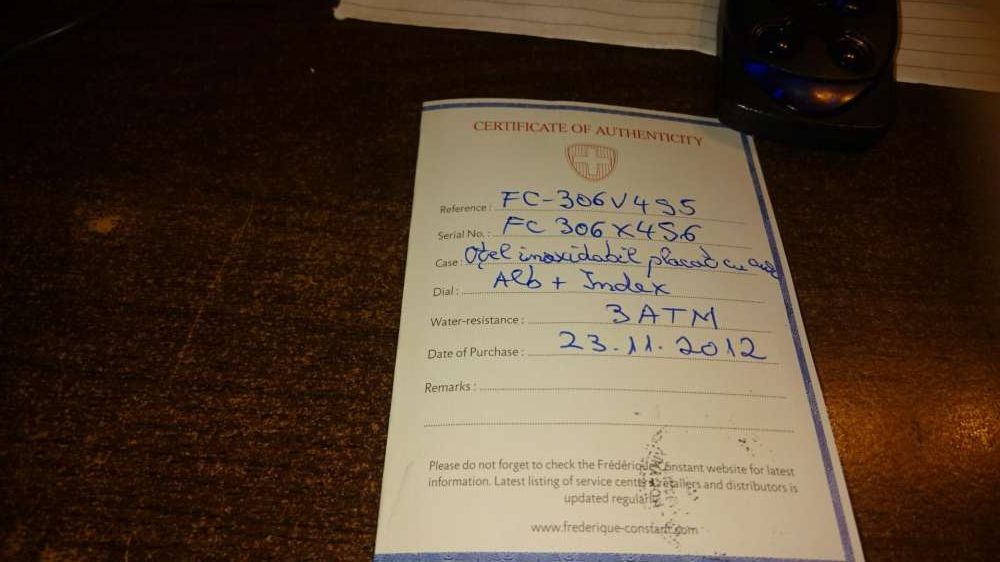 CERTIFICATE OF AUTHENTICITY
Reference : FC-306V4S5
Serial No. : FC 306X4S6
Case : Oțel inoxidabil placat cu aur
Dial : Alb + Index
Water-resistance : 3ATM
Date of Purchase : 23.11.2012
Remarks :
Please do not forget to check the Frédérique Constant website for latest
information. Latest listing of service centers, retailers and distributors is
updated regularly.
www.frederique-constant.com